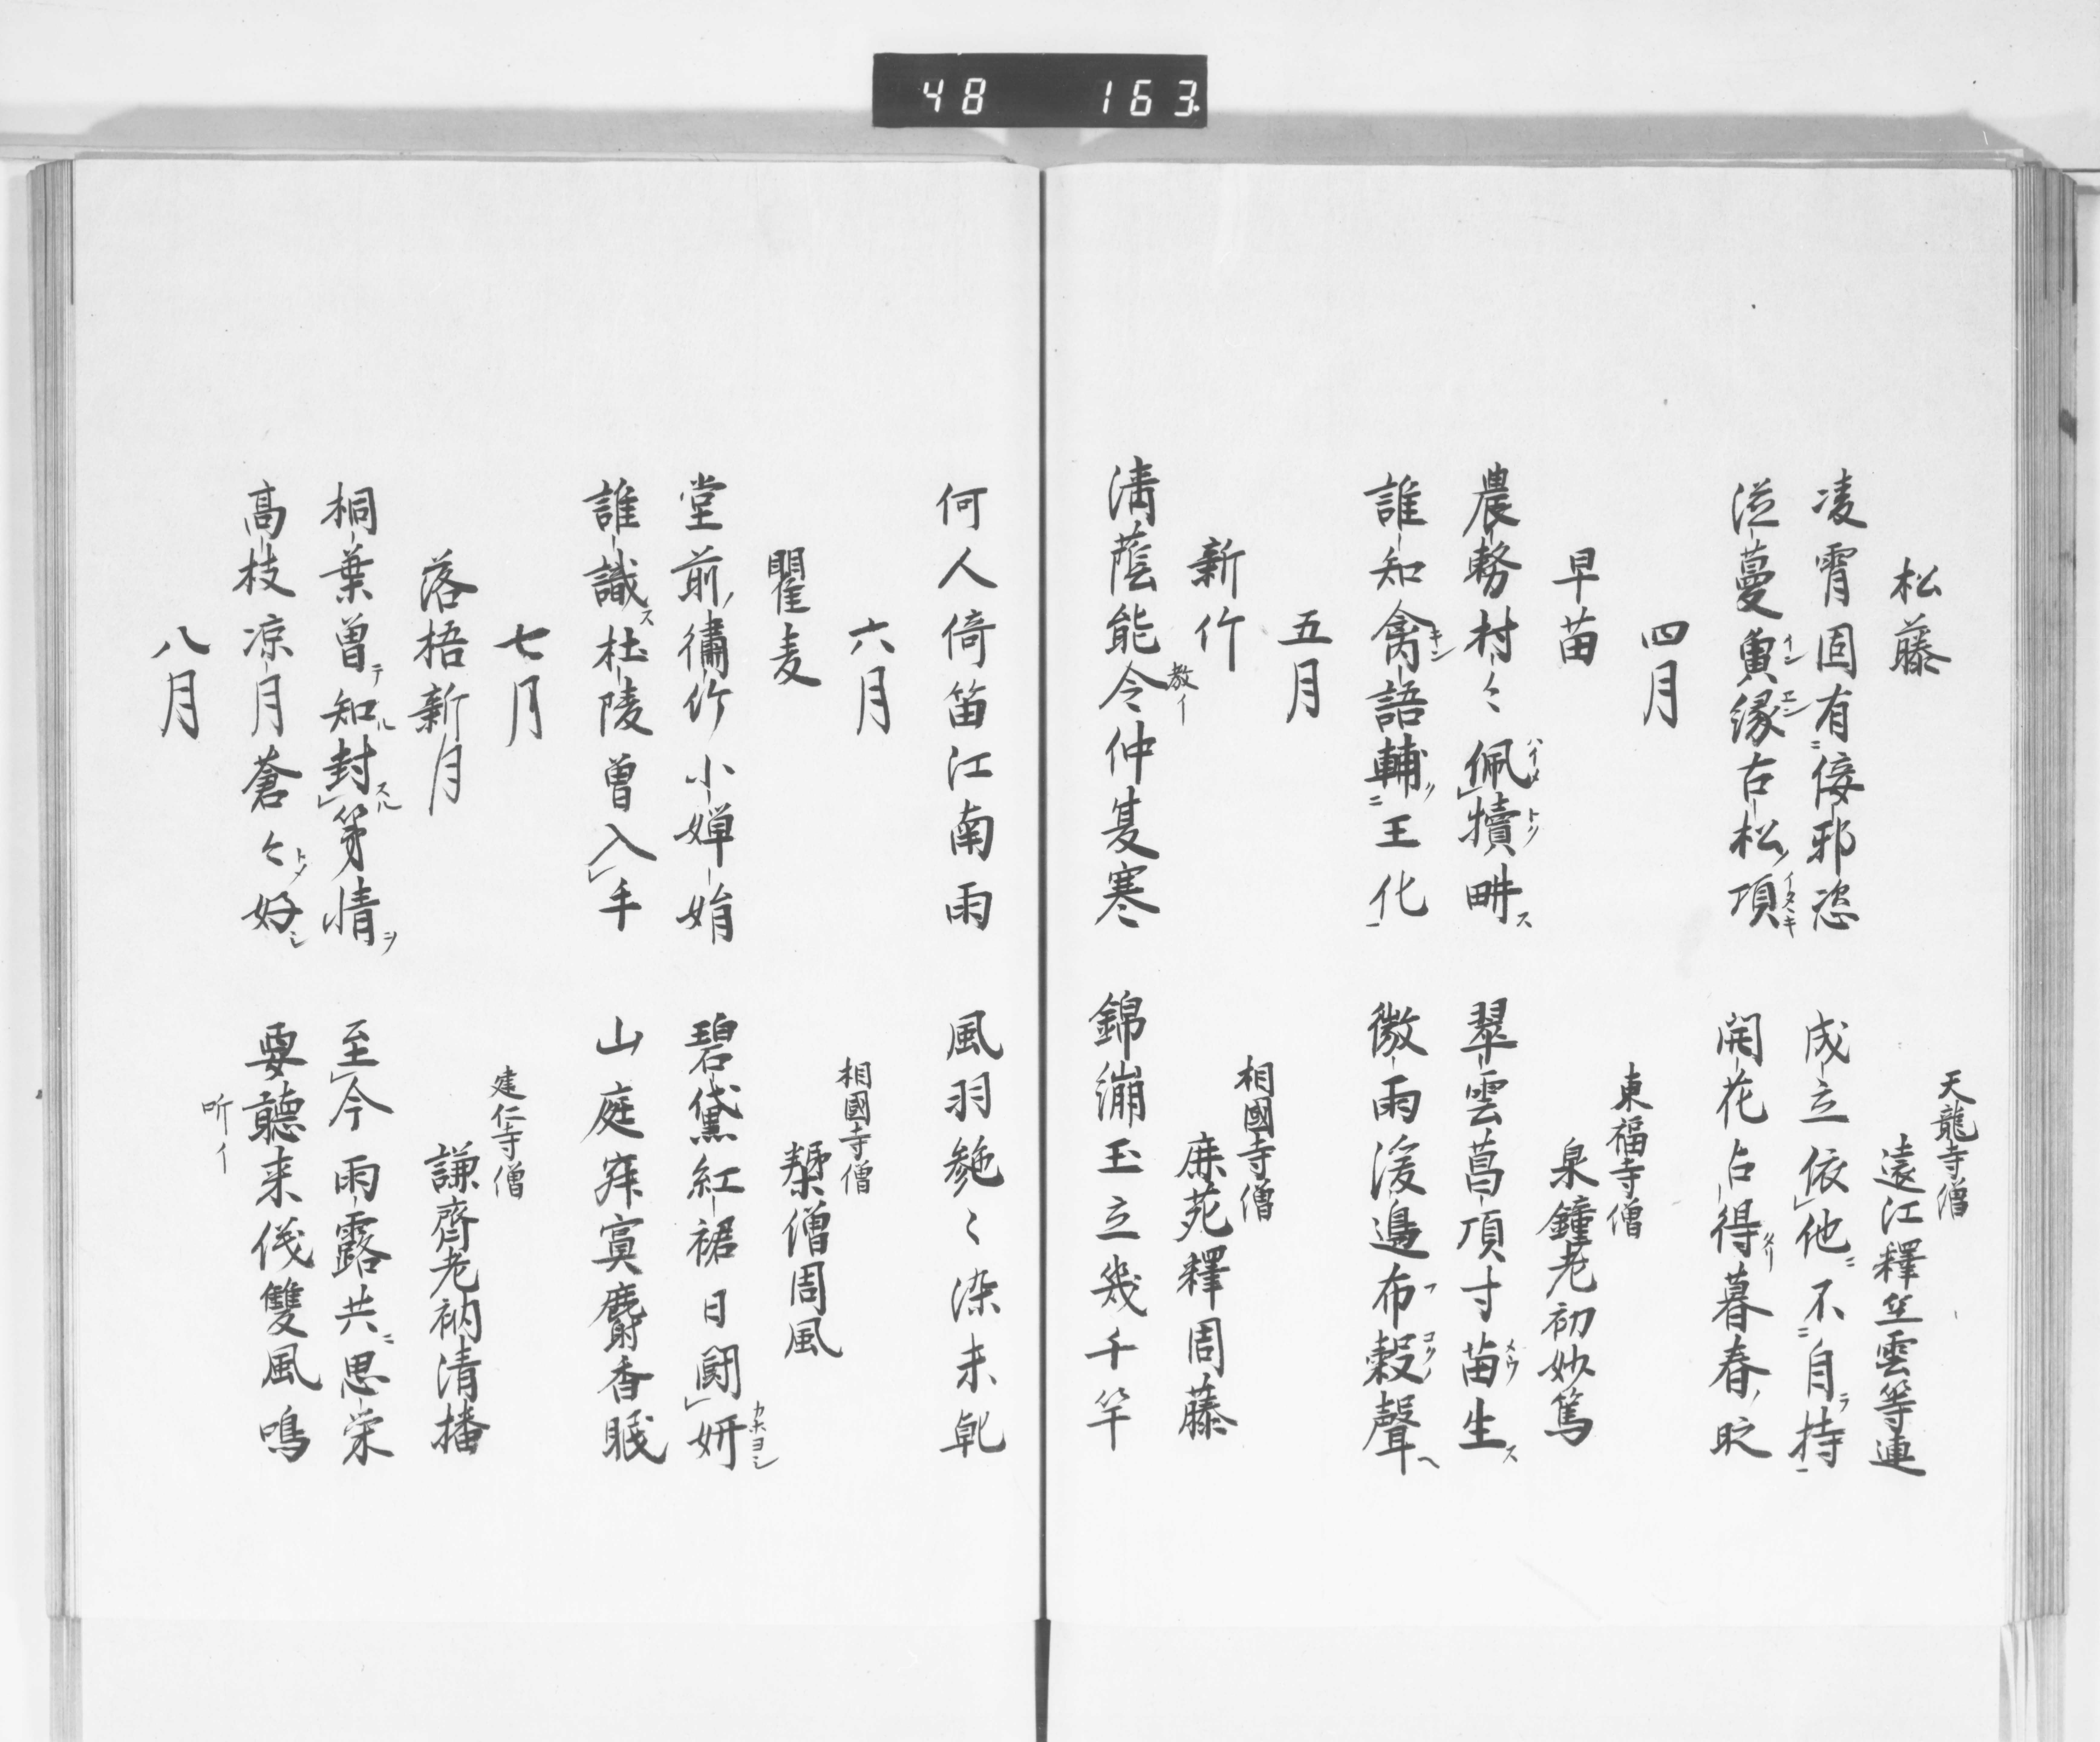 48 163
松藤
天龍寺僧
遠江釋笁雲等連
凌霄固有倿邪恣 成立依他不自持
滋蔓夤縁古松項 開花占得暮春
四月
早苗
東福寺僧
泉鐘老衲妙篤
農務村々佩犢畊 翠雲菖項寸苗生
誰知禽語輔王化 微雨後邉布穀聲
五月
新竹
相國寺僧
麻苑釋周藤
清蔭能令仲夏寒 錦繃玉立幾千竿
教イ
何人倚笛江南雨 風羽毿々染未乹
六月
瞿麦
相國寺僧
僧周鳳
堂前繡竹小嬋娟 碧黛紅裙日鬪妍
誰識杜陵曽入手 山庭寂寞麝香眠
七月
落梧新月
建仁寺僧
謙齊老衲清播
桐葉曽知封弟情 至今雨露共思栄
高枝凉月蒼々好 要聽来儀雙鳳鳴
听イ
八月